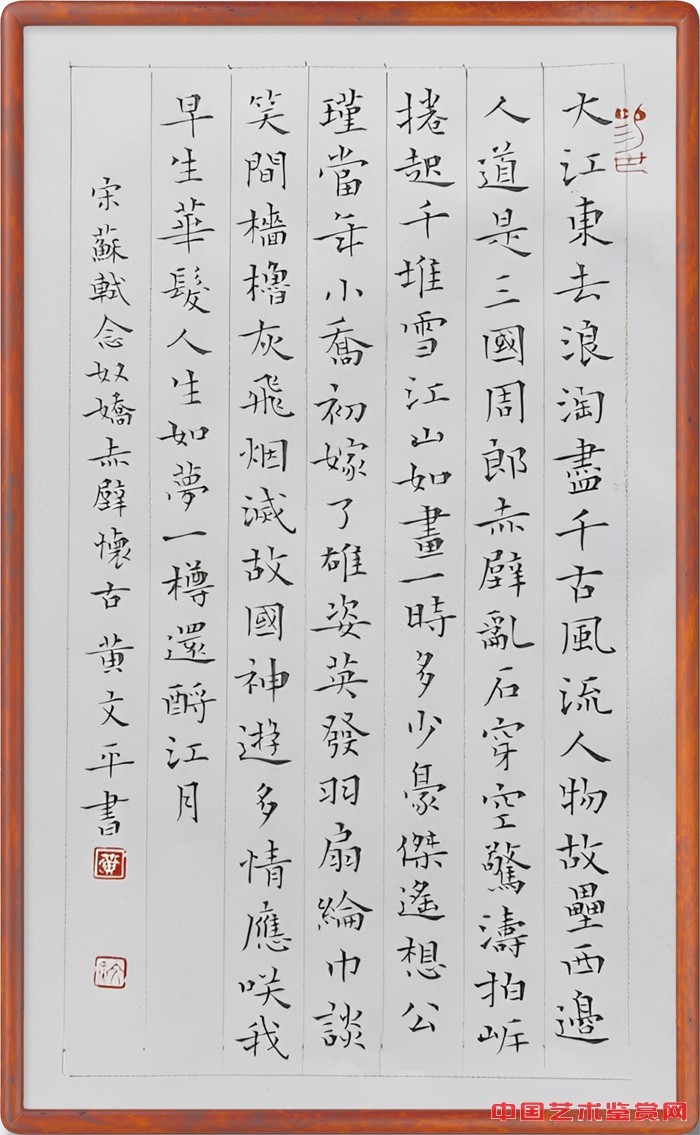 大江東去浪淘盡千古風流人物故壘西邊
人道是三國周郎赤壁亂石穿空驚濤拍岍
捲起千堆雪江山如畫一時多少豪傑遙想公
瑾當年小喬初嫁了雄姿英發羽扇綸巾談
笑間檣櫓灰飛烟滅故國神遊多情應咲我
早生華髮人生如夢一樽還酹江月
宋蘇軾念奴嬌赤壁懷古黄文平書
黄
中国艺术鉴赏网